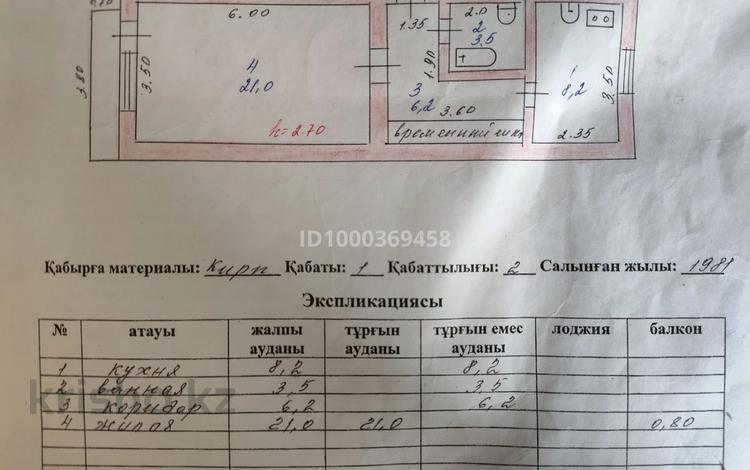 6.00
1.35
2.0
2
3.5
3.80
3.50
4
21,0
1.90
3
6,2
3.60
1
8,2
3.50
h=2.70
временний
2.35
ID1000369458
Қабырға материалы: Кирп Қабаты: 1 Қабаттылығы: 2 Салынған жылы: 1981
Экспликациясы
№ атауы жалпы ауданы тұрғын ауданы тұрғын емес ауданы лоджия балкон
1 кухня 8,2 8,2
2 ванная 3,5 3,5
3 коридор 6,2 6,2
4 жилая 21,0 21,0 0,80